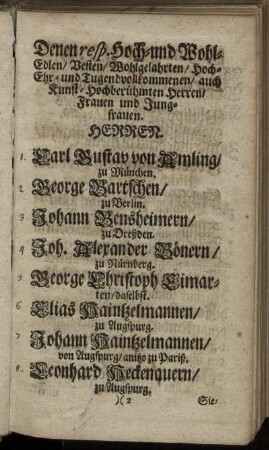 Denen resp. Hoch- und Wohl-
Edlen/ Vesten/ Wohlgelahrten/ Hoch-
Ehr- und Tugendvollkommenen/ auch
Kunst-Hochberühmten Herren/
Frauen und Jung-
frauen.
HERREN.
1. Carl Gustav von Amling/
zu München.
2 George Bartschen/
zu Berlin.
3 Johann Bensheimern/
zu Dreßden.
4 Joh. Alexander Bönern/
zu Nürnberg.
5 George Christoph Eimar-
ten/ daselbst.
6 Elias Haintzelmannen/
zu Augspurg.
7 Johann Haintzelmannen/
von Augspurg/ anitzo zu Pariß.
8. Leonhard Heckenauern/
zu Augspurg.
)( 2 Sie-